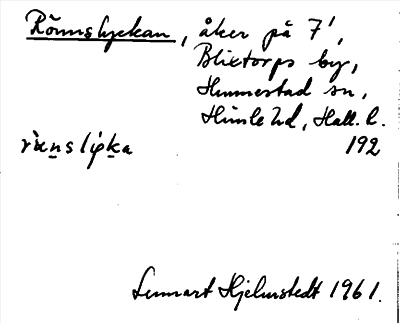 Rönnslyckan, åker på 7¹,
Blixtorps by,
Hunnestad sn,
Himle hd, Hall. l.
192
Lennart Hjelmstedt 1961.